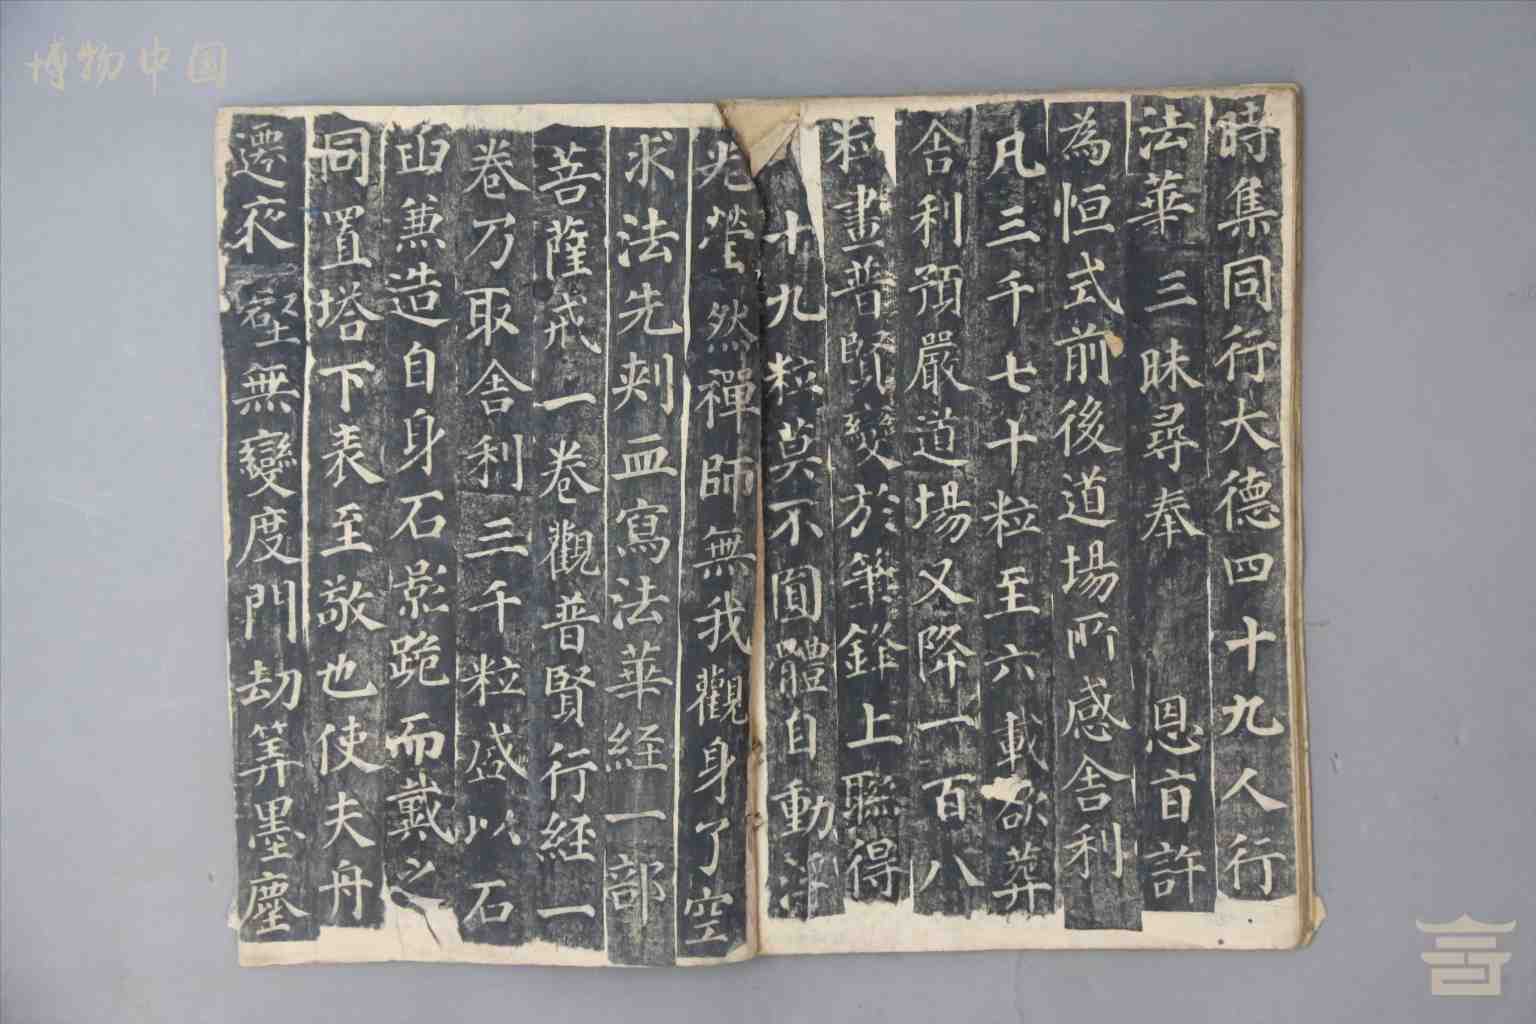 博物中国
時集同行大德四十九人行
法華三昧尋奉 恩旨許
為恒式前後道場所感舍利
凡三千七十粒至六載欲葬
舍利預嚴道場又降一百八
粒畫普賢變於筆鋒上聯得
十九粒莫不圓體自動浮
光瑩然禪師無我觀身了空
求法先刺血寫法華経一部
菩薩戒一卷觀普賢行経一
卷乃取舍利三千粒盛以石
函兼造自身石影跪而戴之
同置塔下表至敬也使夫舟
遷夜壑無變度門劫筭墨塵